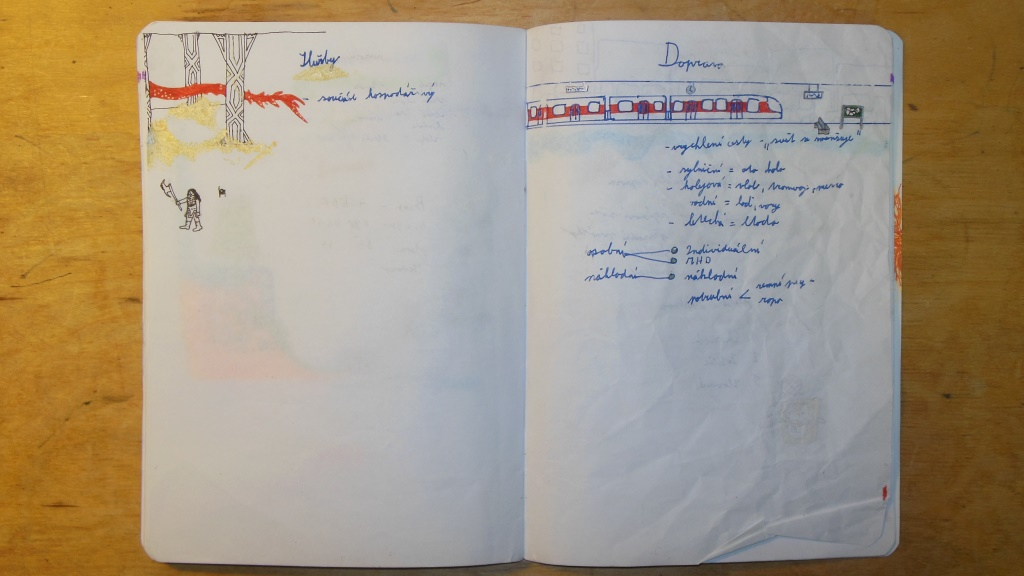 Služby
součást hospodář vý
Doprava
- urychlení cesty - „svět se zmenšuje"
- silniční = auto kolo
- kolejová = vlak, tramvaj, metro
vodní = lodi,
- letecká = letadla
osobní
Individuální
MHD
nákladní
nákladní
potrubní < zemní ply -
ropa